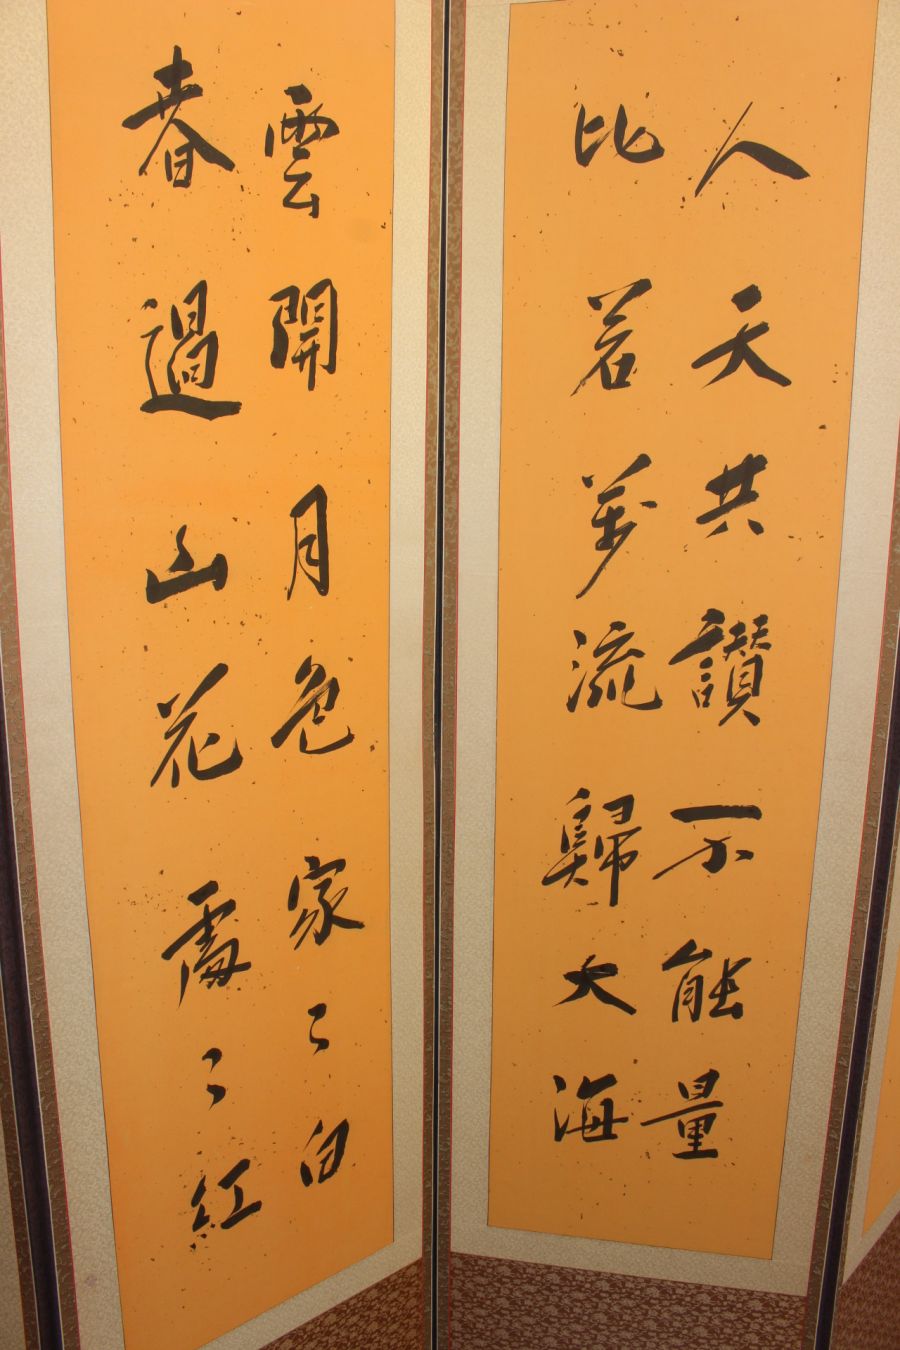 人天共讃不能量
比若万流歸大海
雲開月色家〻白
春過山花處〻紅